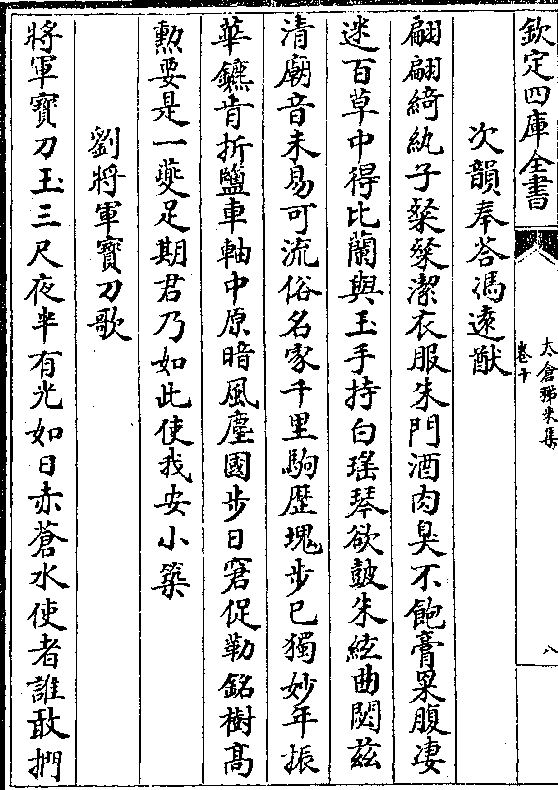 欽定四庫全書
太倉稊米集
卷十
八
次韻奉答馮遠猷
翩翩綺紈子粲粲潔衣服朱門酒肉臭不飽膏粱腹淒
迷百草中得比蘭與玉手持白瑤琴欲鼓朱絃曲閟兹
清廟音未易可流俗名家千里駒歴塊步已獨妙年振
華鑣肯折鹽車軸中原暗風塵國步日窘促勒銘樹髙
勲要是一夔足期君乃如此使我安小築
劉將軍寳刀歌
將軍寳刀玉三尺夜半有光如日赤蒼水使者誰敢捫